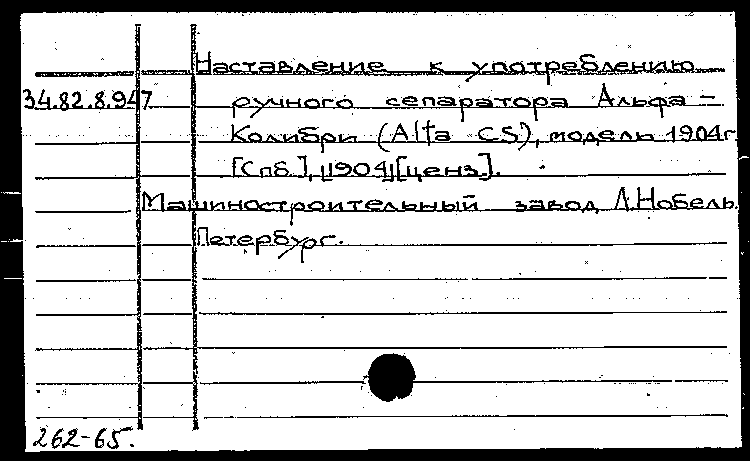 Наставление к употреблению
34.82.8.947 ручного сепаратора Альфа –
Колибри (Alfa CS), модель 1904г.
[Спб.], [1904] [ценз.].
Машиностроительный завод Л.Нобель.
Петербург.
262-65.